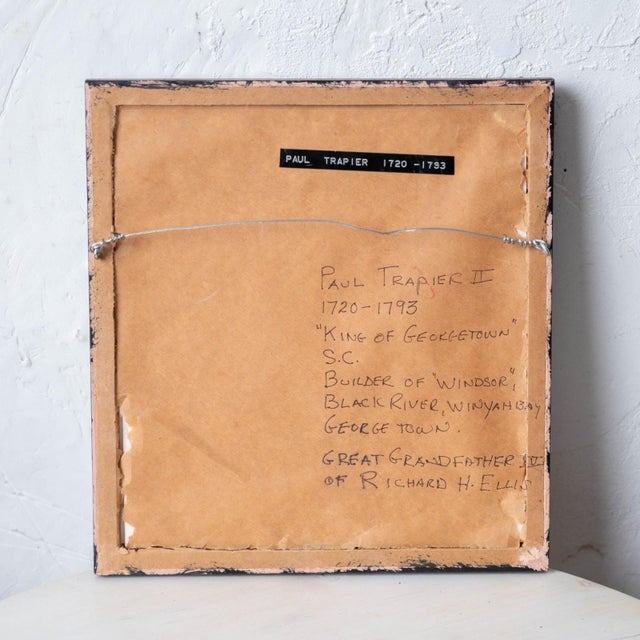 PAUL TRAPIER 1720 -1793
PAUL TRAPIER II
1720-1793
"KING OF GEORGETOWN"
S.C.
BUILDER OF "WINDSOR",
BLACK RIVER, WINYAH BAY
GEORGETOWN.
GREAT GRANDFATHER
OF RICHARD H. ELLIS